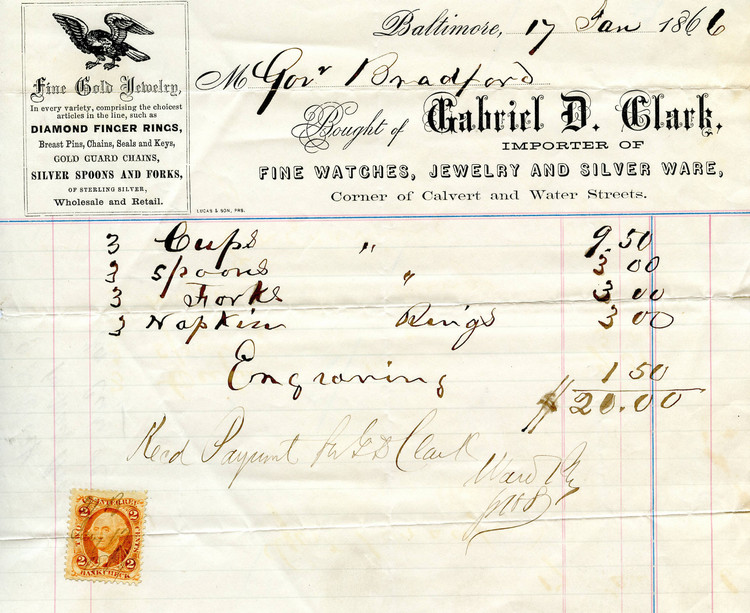 Fine Gold Jewelry,
In every variety, comprising the choicest
articles in the line, such as
DIAMOND FINGER RINGS,
Breast Pins, Chains, Seals and Keys,
GOLD GUARD CHAINS,
SILVER SPOONS AND FORKS,
OF STERLING SILVER,
Wholesale and Retail.
LUCAS & SON, PRS.
Baltimore, 17 Jan 1866
M Govr Bradford
Bought of Gabriel D. Clark,
IMPORTER OF
FINE WATCHES, JEWELRY AND SILVER WARE,
Corner of Calvert and Water Streets.
3 Cups " 9.50
3 Spoons " 3 00
3 Forks 3 00
3 Napkin Rings 3 00
Engraving 1 50
$ 20.00
Recd Payment for G D Clark
Ward
INTER REV
2 2
TWO CENTS
2 2
BANK CHECK